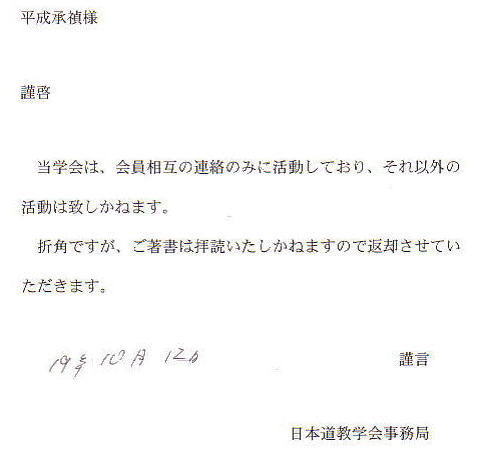 平成承禎様
謹啓
当学会は、会員相互の連絡のみに活動しており、それ以外の
活動は致しかねます。
折角ですが、ご著書は拝読いたしかねますので返却させてい
ただきます。
19年 10月 12日
謹言
日本道教学会事務局